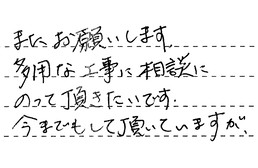 またお願いします。
多用な工事に相談に
のって頂きたいです。
今までもして頂いていますが、